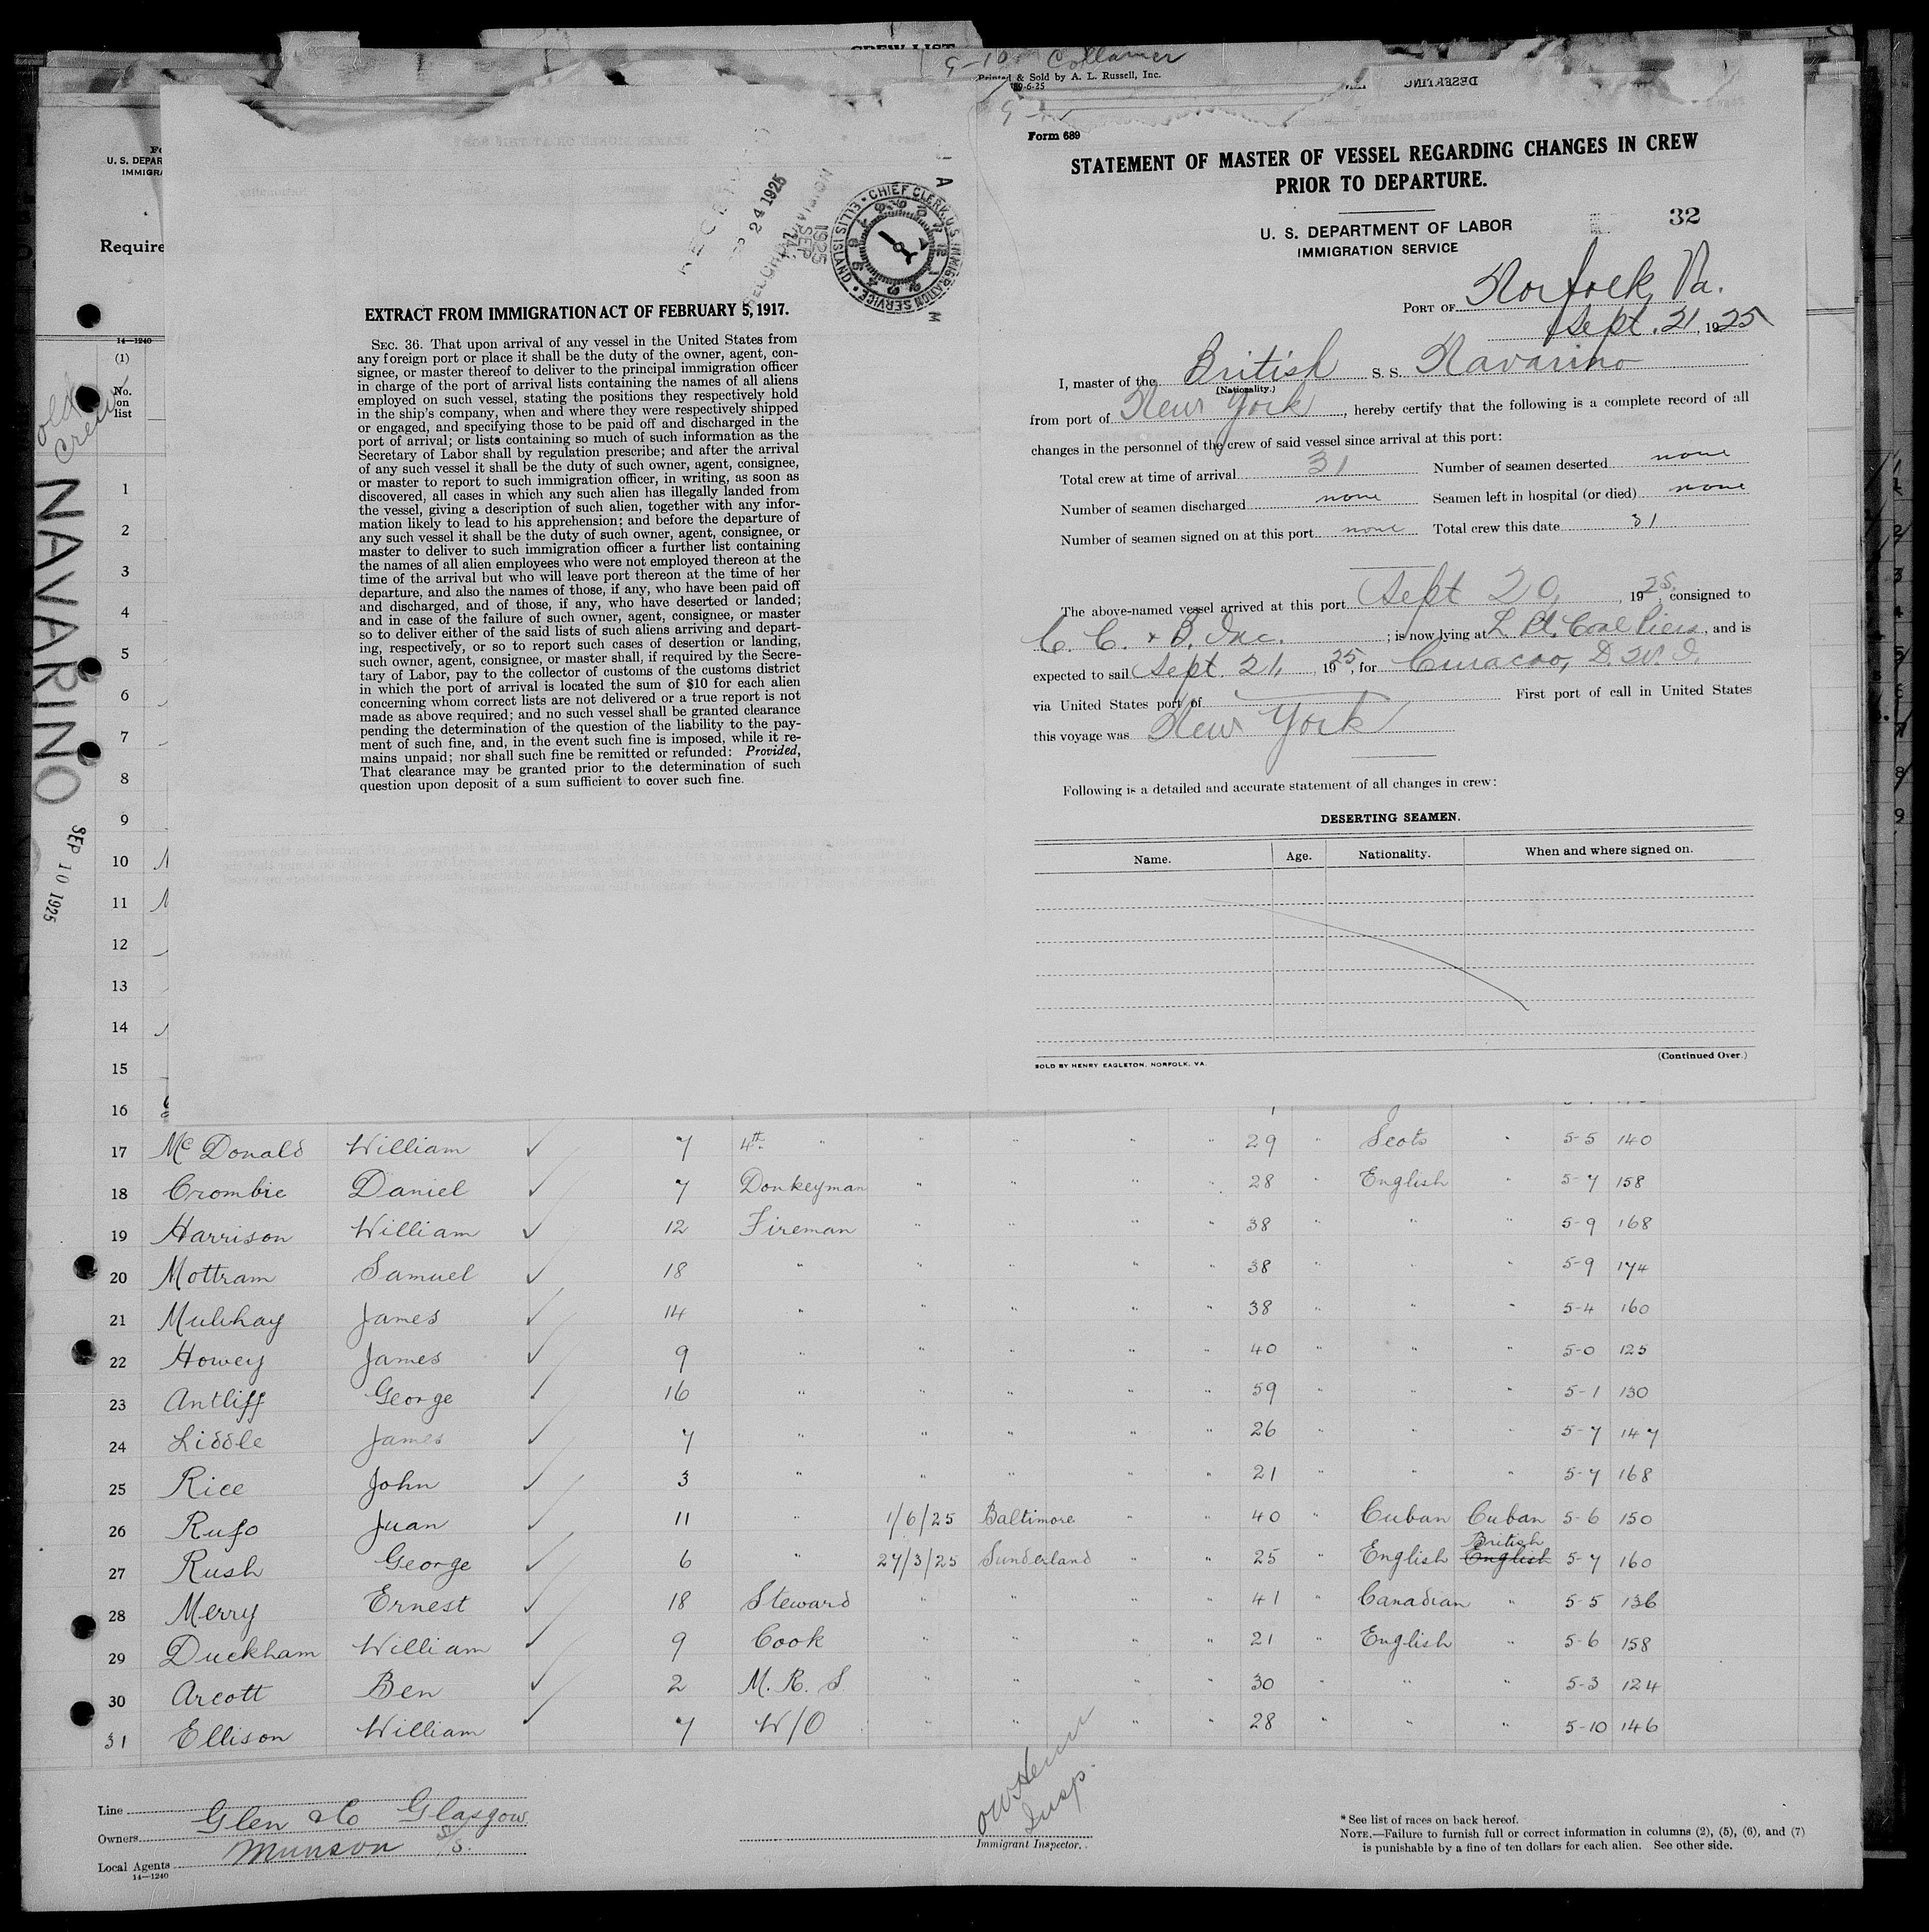 CREW LIST
9-10 Collamer
Printed & Sold by A. L. Russell, Inc.
DESERTING
U. S. DEPAR
IMMIGRA
Require
14—1240
(1)
No.
on
list
old
crew
NAVARINO
SEP 10 1925
1
2
3
4
5
6
7
8
9
10
11
12
13
14
15
16
24 1925
1925
SEP
CHIEF CLERK, U.S. IMMIGRATION SERVICE • ELLIS ISLAND •
EXTRACT FROM IMMIGRATION ACT OF FEBRUARY 5, 1917.
SEC. 36. That upon arrival of any vessel in the United States from
any foreign port or place it shall be the duty of the owner, agent, con-
signee, or master thereof to deliver to the principal immigration officer
in charge of the port of arrival lists containing the names of all aliens
employed on such vessel, stating the positions they respectively hold
in the ship's company, when and where they were respectively shipped
or engaged, and specifying those to be paid off and discharged in the
port of arrival; or lists containing so much of such information as the
Secretary of Labor shall by regulation prescribe; and after the arrival
of any such vessel it shall be the duty of such owner, agent, consignee,
or master to report to such immigration officer, in writing, as soon as
discovered, all cases in which any such alien has illegally landed from
the vessel, giving a description of such alien, together with any infor-
mation likely to lead to his apprehension; and before the departure of
any such vessel it shall be the duty of such owner, agent, consignee, or
master to deliver to such immigration officer a further list containing
the names of all alien employees who were not employed thereon at the
time of the arrival but who will leave port thereon at the time of her
departure, and also the names of those, if any, who have been paid off
and discharged, and of those, if any, who have deserted or landed;
and in case of the failure of such owner, agent, consignee, or master
so to deliver either of the said lists of such aliens arriving and depart-
ing, respectively, or so to report such cases of desertion or landing,
such owner, agent, consignee, or master shall, if required by the Secre-
tary of Labor, pay to the collector of customs of the customs district
in which the port of arrival is located the sum of $10 for each alien
concerning whom correct lists are not delivered or a true report is not
made as above required; and no such vessel shall be granted clearance
pending the determination of the question of the liability to the pay-
ment of such fine, and, in the event such fine is imposed, while it re-
mains unpaid; nor shall such fine be remitted or refunded: Provided,
That clearance may be granted prior to the determination of such
question upon deposit of a sum sufficient to cover such fine.
Form 689
STATEMENT OF MASTER OF VESSEL REGARDING CHANGES IN CREW
PRIOR TO DEPARTURE.
32
U. S. DEPARTMENT OF LABOR
IMMIGRATION SERVICE
PORT OF Norfolk, Va.
Sept. 21, 1925
I, master of the British S. S. Navarino
(Nationality.)
from port of New York, hereby certify that the following is a complete record of all
changes in the personnel of the crew of said vessel since arrival at this port:
Total crew at time of arrival 31 Number of seamen deserted none
Number of seamen discharged none Seamen left in hospital (or died) none
Number of seamen signed on at this port none Total crew this date 31
The above-named vessel arrived at this port Sept 20, 1925, consigned to
C. C. & B. Inc. ; is now lying at L. Pt. Coal Piers, and is
expected to sail Sept. 21, 1925, for Curacao, D. W. I.
via United States port of First port of call in United States
this voyage was New York
Following is a detailed and accurate statement of all changes in crew:
DESERTING SEAMEN.
Name. Age. Nationality. When and where signed on.
SOLD BY HENRY EAGLETON, NORFOLK, VA.
(Continued Over.)
17 McDonald William ✓ 7 4th " " " " " 29 " Scots " 5-5 140
18 Crombie Daniel ✓ 7 Donkeyman " " " " 28 " English " 5-7 158
19 Harrison William ✓ 12 Fireman " " " " 38 " " " 5-9 168
20 Mottram Samuel ✓ 18 " " " " " 38 " " " 5-9 174
21 James ✓ 14 " " " " " 38 " " " 5-4 160
22 Howey James ✓ 9 " " " " " 40 " " " 5-0 125
23 Antliff George ✓ 16 " " " " " 59 " " " 5-1 130
24 Liddle James ✓ 7 " " " " " 26 " " " 5-7 147
25 Rice John ✓ 3 " " " " " 21 " " " 5-7 168
26 Rufo Juan ✓ 11 " 1/6/25 Baltimore " " 40 " Cuban Cuban 5-6 150
27 Rush George ✓ 6 " 27/3/25 Sunderland " " 25 " English British English 5-7 160
28 Merry Ernest ✓ 18 Steward " " " " 41 " Canadian " 5-5 136
29 Duckham William ✓ 9 Cook " " " " 21 " English " 5-6 158
30 Arcott Ben ✓ 2 M. R. S. " " " " 30 " " " 5-3 124
31 Ellison William ✓ 7 W/O " " " " 28 " " " 5-10 146
Line
Owners Glen & Co Glasgow
Local Agents Munson S/S.
14—1240
Insp.
Immigrant Inspector.
* See list of races on back hereof.
NOTE.—Failure to furnish full or correct information in columns (2), (5), (6), and (7)
is punishable by a fine of ten dollars for each alien. See other side.